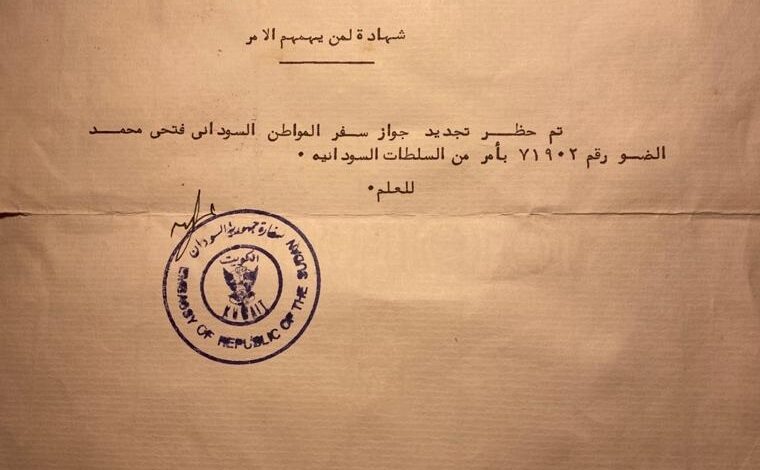 شهادة لمن يهمهم الامر
تم حظــر تجديد جواز سفر المواطن السودانى فتحى محمــد
الضــو رقم ٧١٩٠٢ بأمر من السلطات السودانيه ٠
للعلم ٠
سفارة جمهورية السودان
الكويت
KUWAIT
EMBASSY OF REPUBLIC OF THE SUDAN